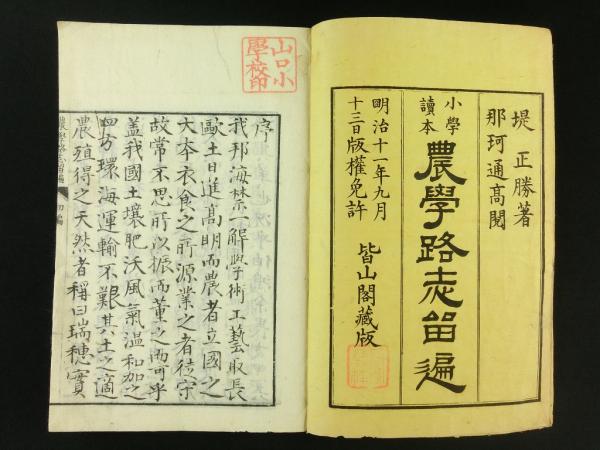 堤正勝著
那珂通高閲
小學讀本
農學路志留遍
明治十一年九月
十三日版權免許
皆山閣藏版
山口小
學校印
序
我邦海禁一解學術工藝取長
歐土日進高明而農者立國之
大本衣食之所源業之者徒守
故常不思所以振而董之而可乎
蓋我國土壤肥沃風氣温和加之
四方環海運輸不艱其土之適
農殖得之天然者稱曰瑞穗實